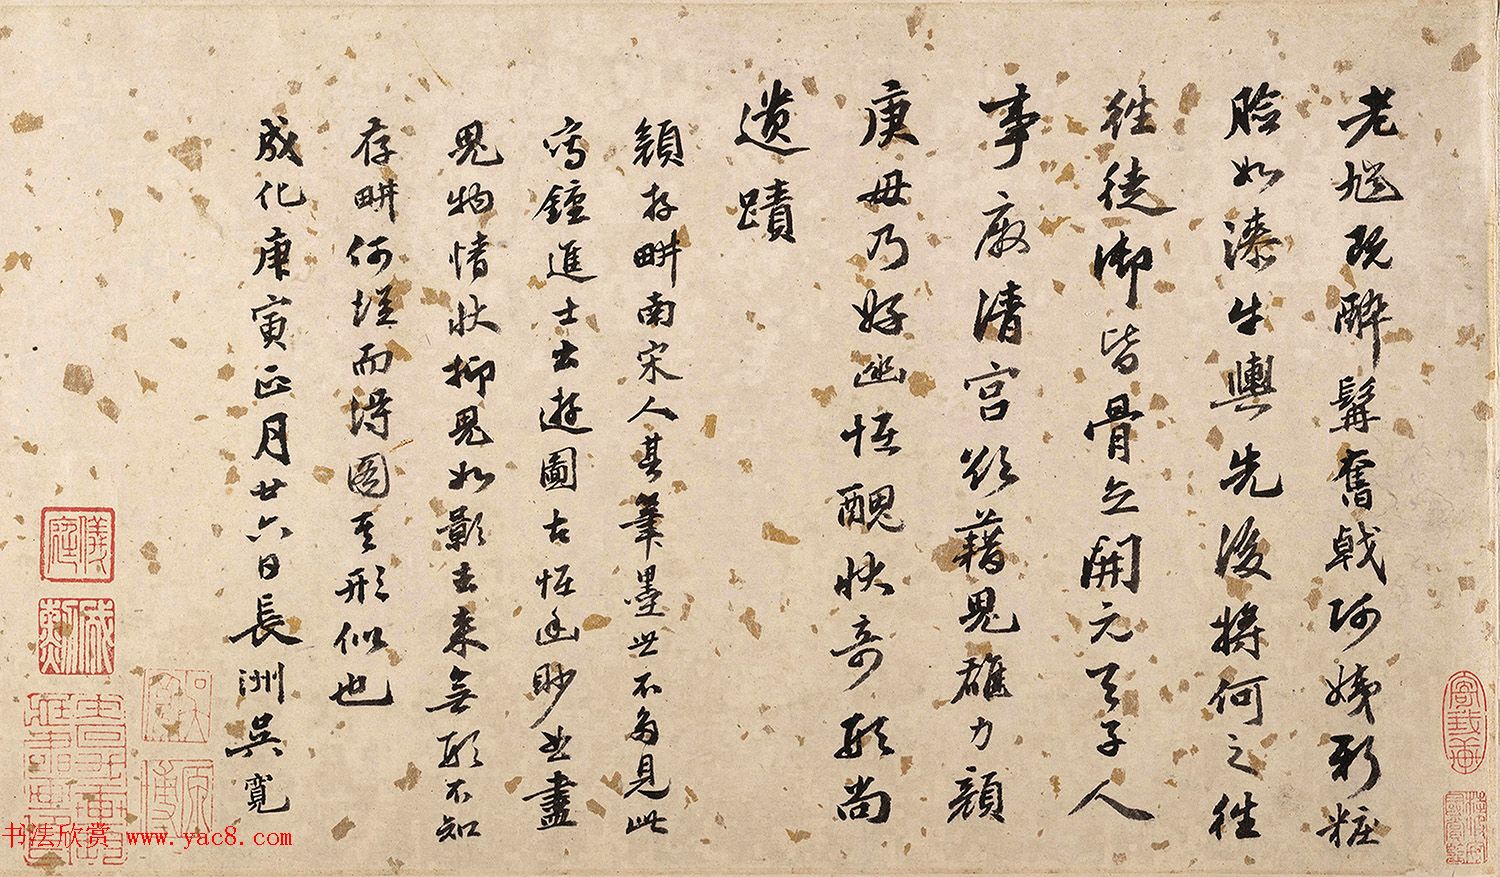 老馗既醉髯奮戟阿姨新粧
臉如漆牛輿先後將何之往
往徒御皆骨立開元天子人
事廢清宮欲藉鬼雄力顏
庚毋乃好幽怪醜狀奇形尚
遺蹟
顏存畊南宋人其筆墨世不多見此
寫鍾進士出遊圖古怪幽眇曲盡
鬼物情狀抑鬼如影去來無形不知
存畊何從而得圖其形似也
成化庚寅正月廿六日長洲吳寬
儀庭
原博
书法欣赏 www.yac8.com